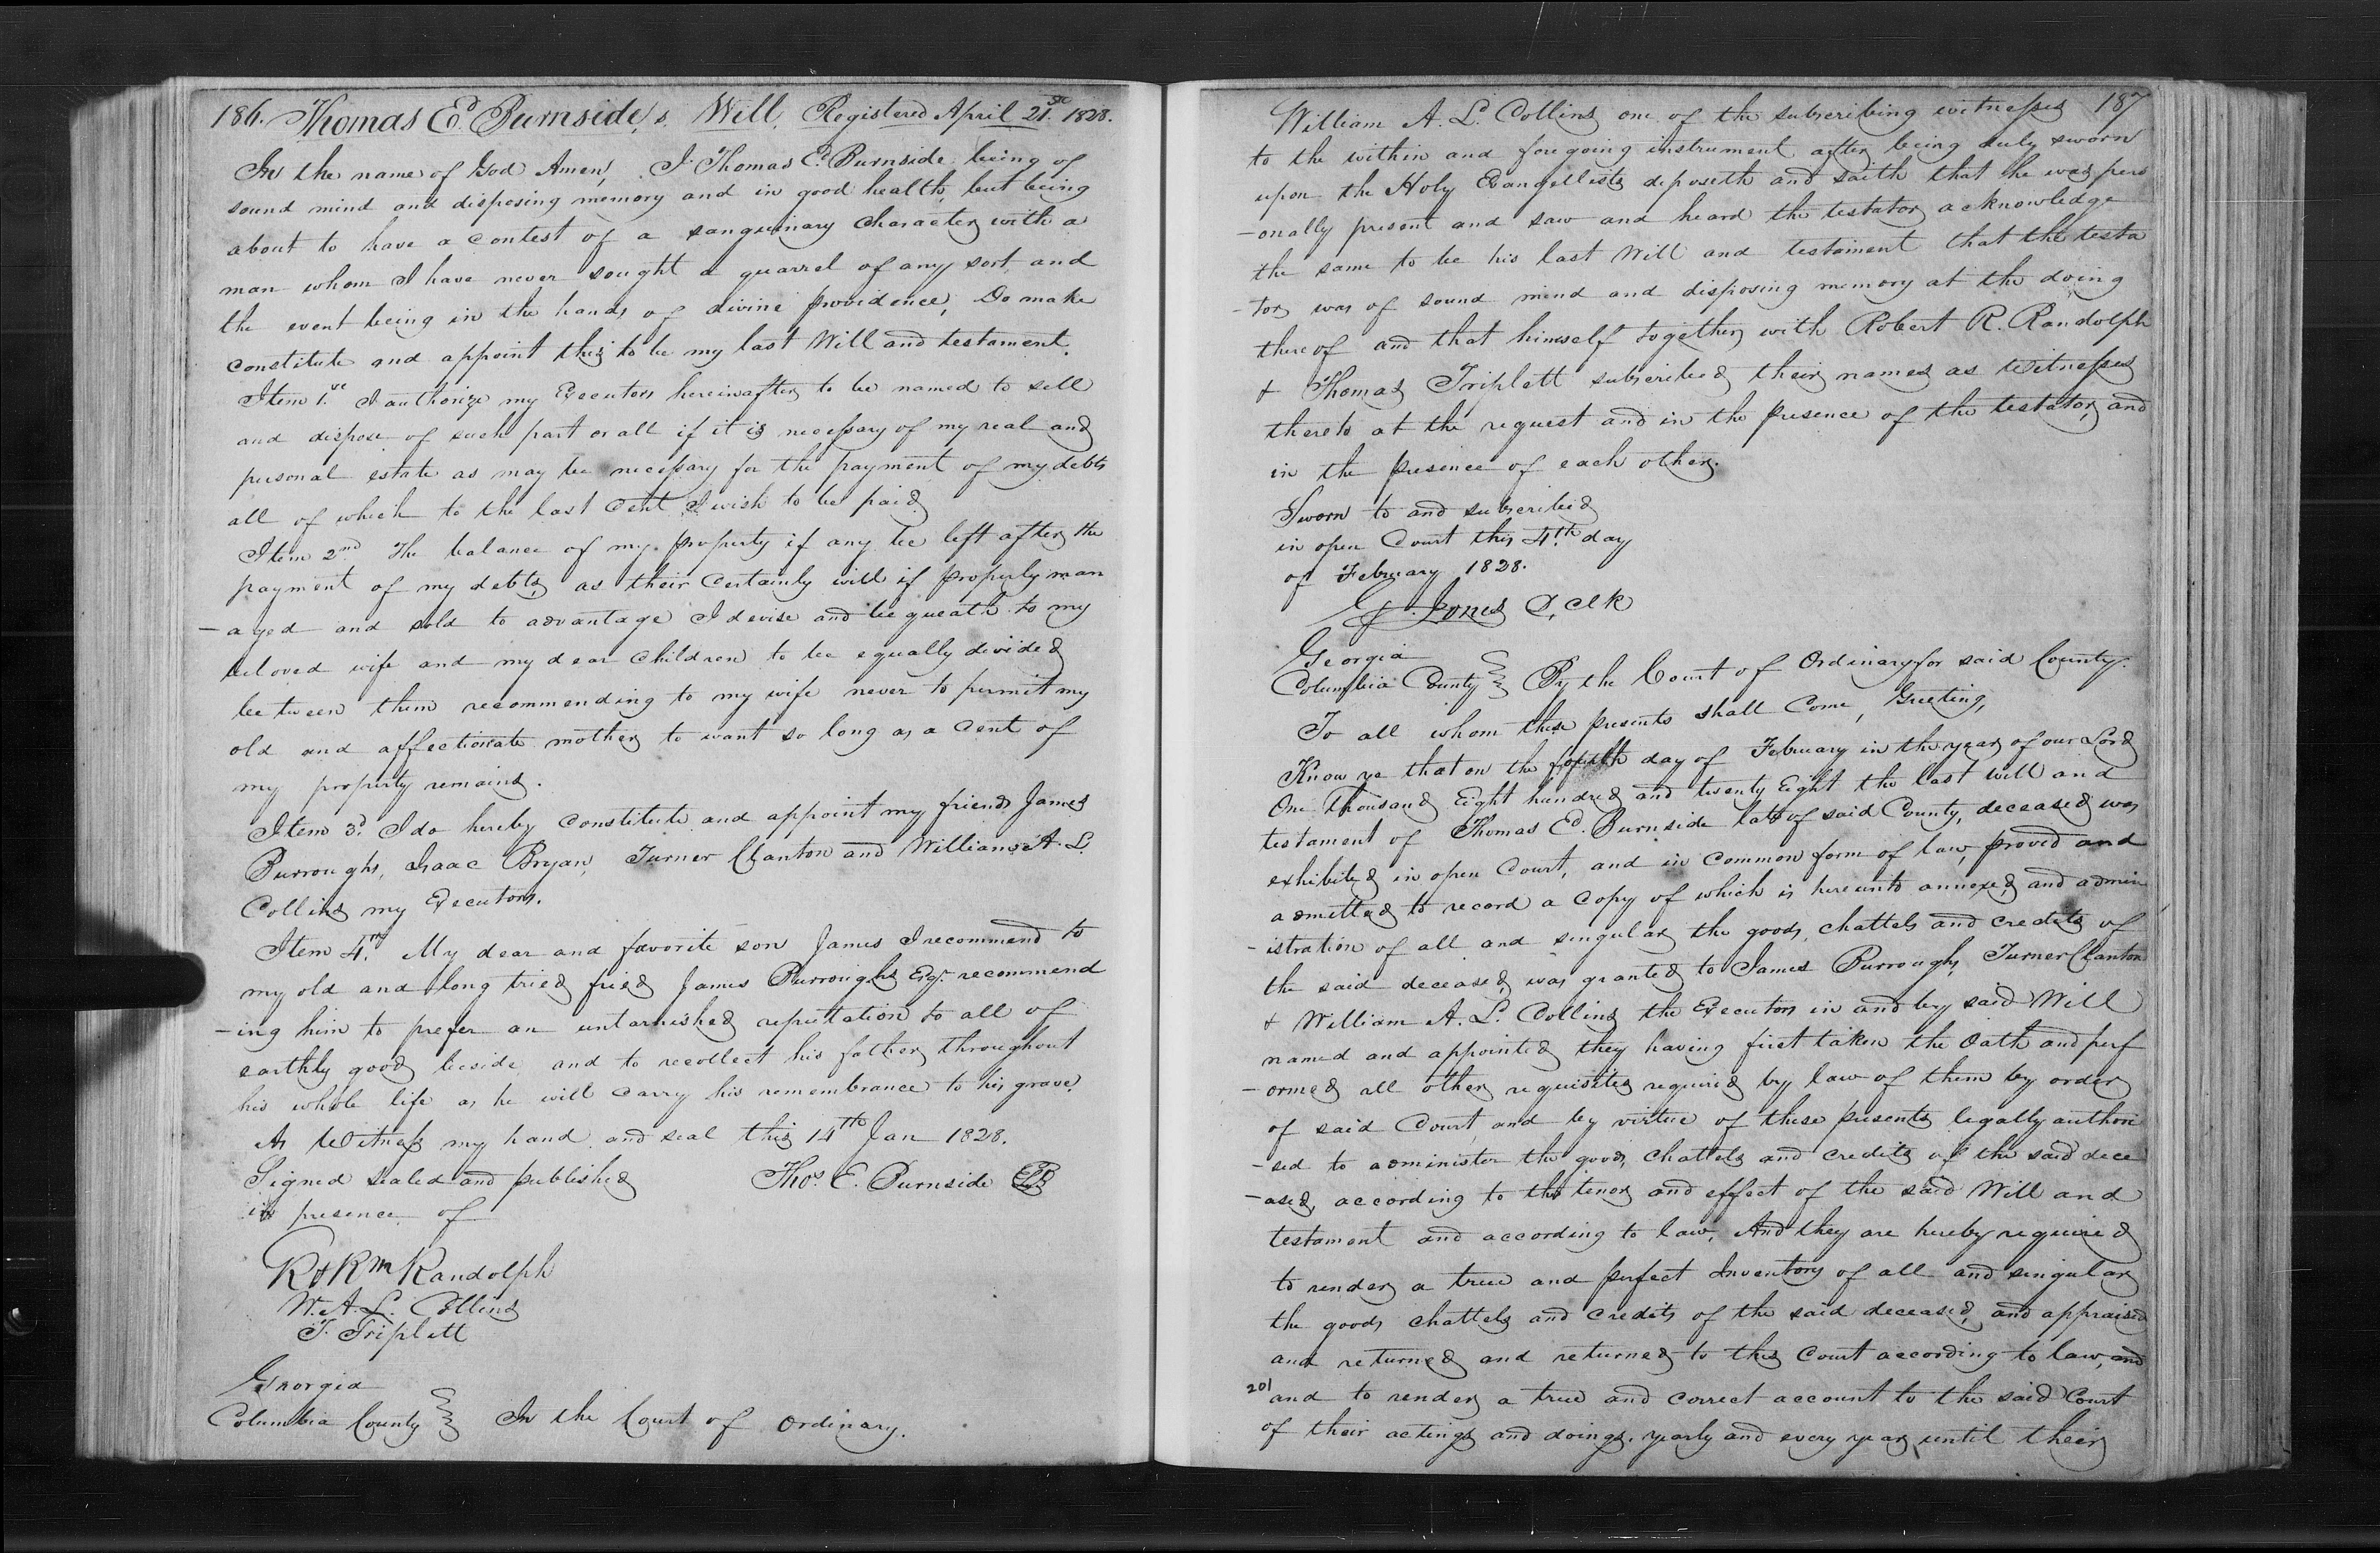 186. Thomas E. Burnside,s. Will, Registered April 21st 1828.
In the name of God Amen, I Thomas E. Burnside being of
sound mind and disposing memory and in good health, but being
about to have a contest of a sanguinary character with a
man whom I have never sought a quarrel of any sort, and
the event being in the hands of divine providence, Do make
constitute and appoint this to be my last Will and testament.
Item 1.st I authorize my Executors hereinafter to be named to sell
and dispose of such part or all if it is necessary of my real and
personal estate as may be necessary for the payment of my debts
all of which to the last cent I wish to be paid
Item 2nd The balance of my property if any be left after the
payment of my debts, as their certainly will if properly man
-aged and sold to advantage I devise and bequeath to my
beloved wife and my dear children to be equally divided
between them recommending to my wife never to permit my
old and affectionate mother to want so long as a cent of
my property remains.
Item 3d. I do hereby constitute and appoint my friends James
Burroughs, Isaac Bryan, Turner Clanton and William A. L.
Collins my Executors.
Item 4.th My dear and favorite son James I recommend to
my old and long tried fried James Burroughs Esqr. recommend
-ing him to prefer an untarnished reputation to all of
earthly good beside, and to recollect his father throughout
his whole life as he will carry his remembrance to his grave.
As Witness my hand and seal this 14th Jan 1828.
Signed sealed and published Thos. E. Burnside
in presence of
R Randolph
W. A. L. Collins
T. Triplett
Georgia
Columbia County In the Court of Ordinary.
William A. L. Collins one of the subscribing witnesses 187
to the within and foregoing instrument after being duly sworn
upon the Holy Evangellists deposeth and saith that he was pers
-onally present and saw and heard the testator acknowledge
the same to be his last Will and testament that the testa
-tor was of sound mind and disposing memory at the doing
thereof and that himself together with Robert R. Randolph
& Thomas Triplett subscribed their names as Witnesses
thereto at the request and in the presence of the testator, and
in the presence of each other.
Sworn to and subscribed
in open Court this 4.th day
of February 1828.
G. Jones D, clk
Georgia
Columbia County By the Court of Ordinary for said County.
To all whom these presents shall Come, Greeting,
Know ye that on the fourth day of February in the year of our Lord
One Thousand Eight hundred and twenty Eight the last will and
testament of Thomas E. Burnside late of said County, deceased was
exhibited in open Court, and in common form of law, proved and
admitted to record a copy of which is hereunto annexed and admin
-istration of all and singular the goods, chattels and credits of
the said deceased, was granted to James Burroughs, Turner Clanton
& William A. L. Collins the Executors in and by said Will
named and appointed they having first taken the Oath and perf
-ormed all other requisites required by law of them by order
of said Court, and by virtue of these presents legally authori
-sed to administer the goods, chattels and credits of the said dece
-ased, according to the tenor and effect of the said Will and
testament and according to law. And they are hereby required
to render a true and perfect Inventory of all and singular
the goods chattels and credits of the said deceased, and appraised
and returned and returned to this Court according to law, and
201
and to render a true and correct account to the said Court
of their actings and doings, yearly and every year, until their